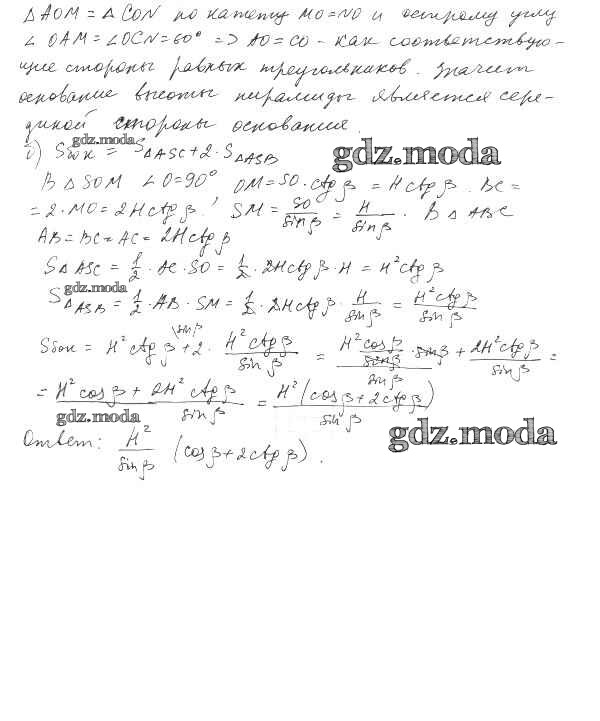 △AOM = △CON по катету MO=NO и острому углу
∠OAM = ∠OCN = 60° => AO = CO - как соответствую-
щие стороны равных треугольников. Значит
основание высоты пирамиды является сере-
диной стороны основания.
gdz.moda
1) Sбок = S△ASC + 2·S△ASB
gdz.moda
В △SOM ∠O=90° OM=SO·ctgβ = Hctgβ. BC =
= 2·MO = 2Hctgβ, SM = SO/sinβ = H/sinβ. В △ABC
AB = BC = AC = 2Hctgβ
S△ASC = 1/2·AC·SO = 1/2·2Hctgβ·H = H²ctgβ
gdz.moda
S△ASB = 1/2·AB·SM = 1/2·2Hctgβ·H/sinβ = H²ctgβ/sinβ
Sбок = H²ctgβ\sinβ + 2·H²ctgβ/sinβ = (H²cosβ/sinβ·sinβ)/sinβ + 2H²ctgβ/sinβ =
= (H²cosβ + 2H²ctgβ)/sinβ = H²(cosβ+2ctgβ)/sinβ
gdz.moda
Ответ: H²/sinβ (cosβ+2ctgβ).
gdz.moda